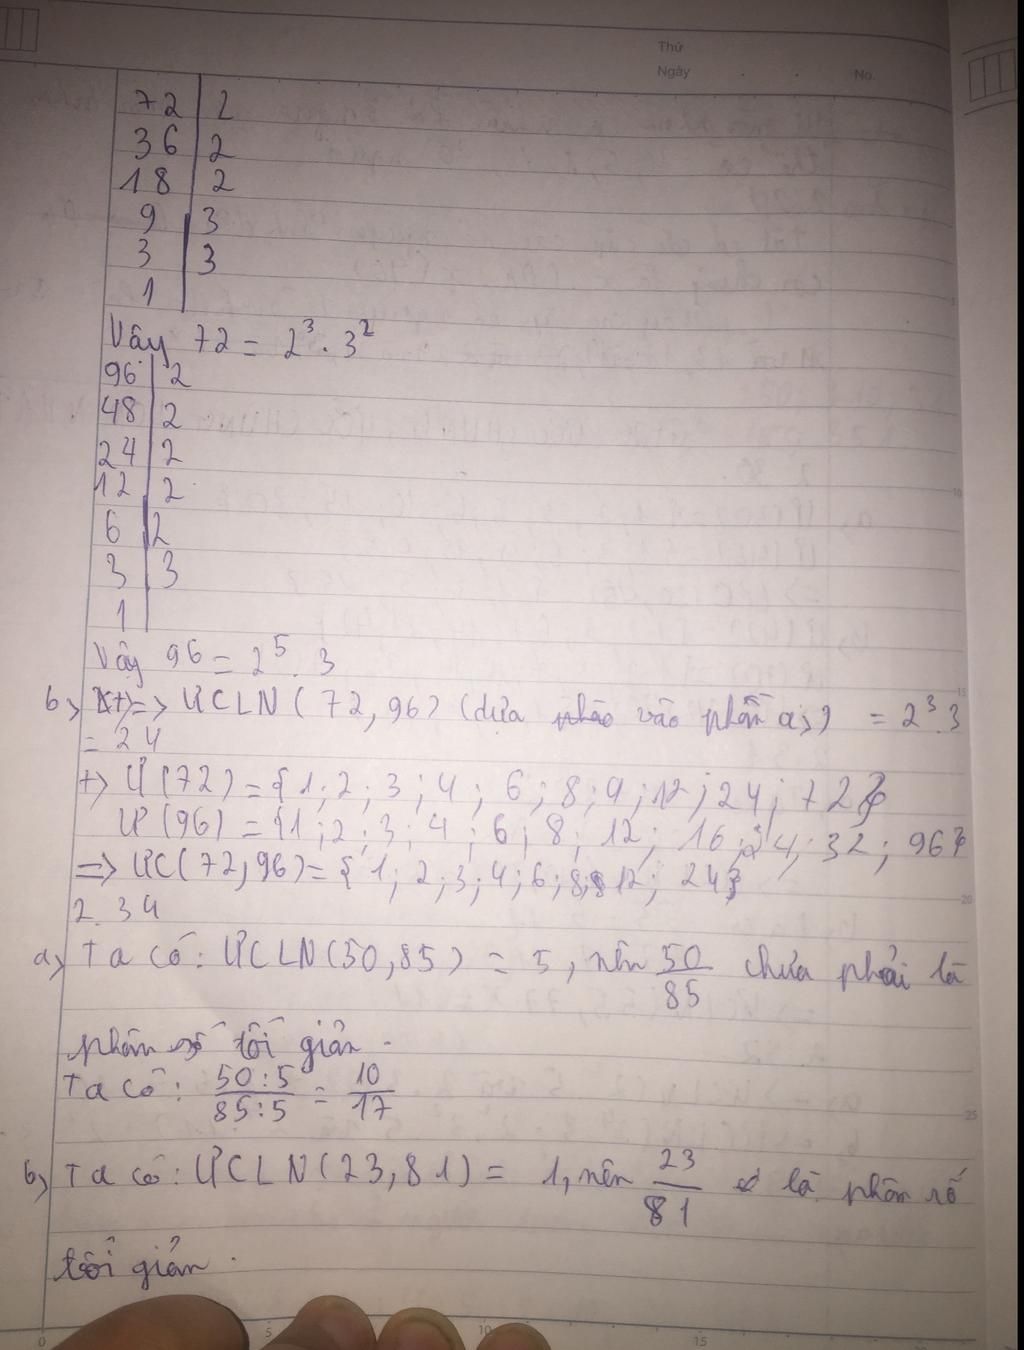 Thứ
Ngày . . No.
72 | 2
36 | 2
18 | 2
9 | 3
3 | 3
1 |
Vậy 72 = 2³. 3²
96 | 2
48 | 2
24 | 2
12 | 2
6 | 2
3 | 3
1 |
Vậy 96 = 2⁵. 3
b) => ƯCLN(72,96) (dựa vào phần a,) = 2³.3
= 24
+) Ư(72) = {1; 2; 3; 4; 6; 8; 9; 12; 24; 72}
Ư(96) = {1; 2; 3; 4; 6; 8; 12; 16; 24; 32; 96}
=> ƯC(72,96) = {1; 2; 3; 4; 6; 8; 12; 24}
2.34
a) Ta có: ƯCLN(50,85) = 5, nên 50/85 chưa phải là
phân số tối giản.
Ta có: 50:5/85:5 = 10/17
b) Ta có: ƯCLN(23,81) = 1, nên 23/81 là phân số
tối giản.
0 5 10 15